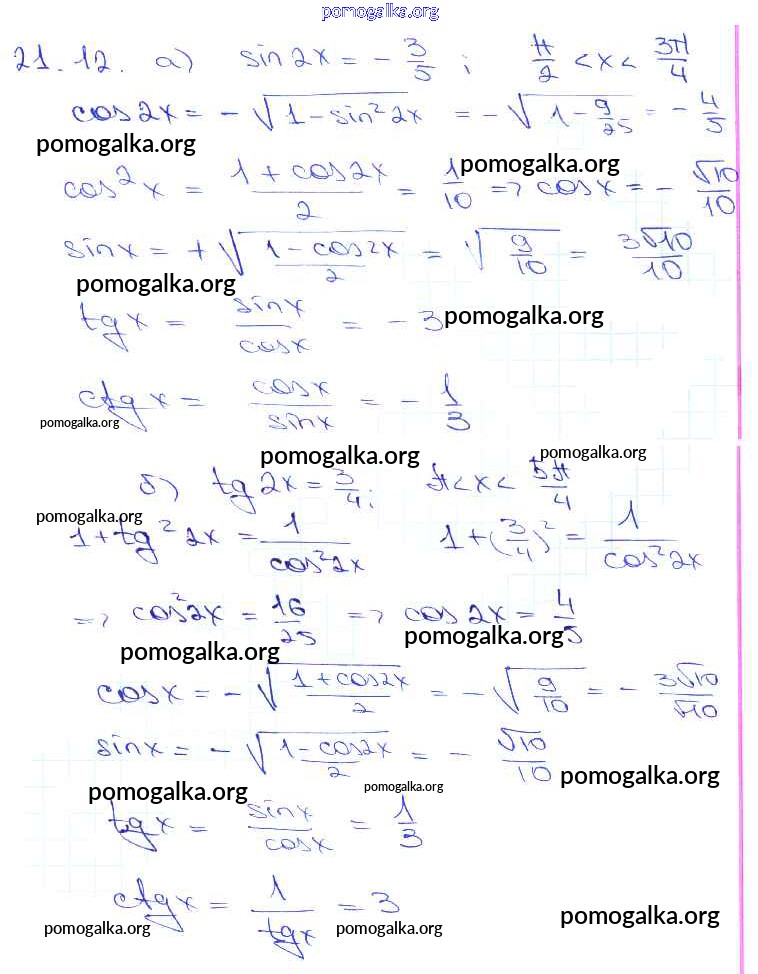 pomogalka.org
21.12. а) sin2x = - 3/5 ; π/2 < x < 3π/4
cos2x = -√(1-sin²2x) = -√(1 - 9/25) = - 4/5
pomogalka.org pomogalka.org
cos²x = (1+cos2x)/2 = 1/10 => cosx = - √10/10
sinx = +√((1-cos2x)/2) = √(9/10) = 3√10/10
pomogalka.org
tgx = sinx/cosx = -3 pomogalka.org
ctgx = cosx/sinx = - 1/3
pomogalka.org
pomogalka.org pomogalka.org
б) tg2x = 3/4; π < x < 5π/4
pomogalka.org
1+tg²2x = 1/cos²2x 1+(3/4)² = 1/cos²2x
=> cos²2x = 16/25 => cos2x = 4/5
pomogalka.org pomogalka.org
cosx = -√((1+cos2x)/2) = -√(9/10) = - 3√10/√10
sinx = -√((1-cos2x)/2) = - √10/10
pomogalka.org pomogalka.org pomogalka.org
tgx = sinx/cosx = 1/3
ctgx = 1/tgx = 3
pomogalka.org pomogalka.org pomogalka.org